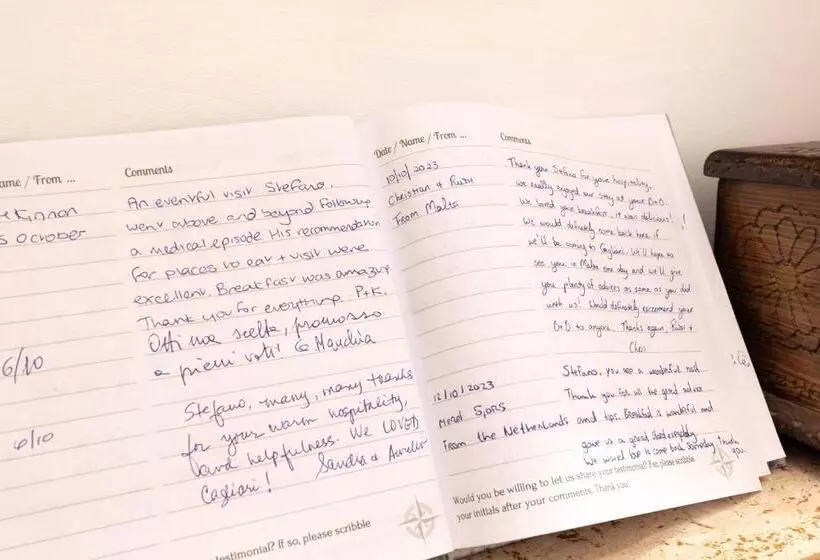 ame / From ...
Comments
Kinnon
October
An eventful visit Stefano,
went above and beyond following
a medical episode. His recommendation
for places to eat & visit were
excellent. Breakfast was amazing
Thank you for everything. P+K.
6/10
Ottima scelta, promosso
a pieni voti!
6/10
Stefano, many, many thanks
for your warm hospitality,
and helpfulness. We LOVED
Cagliari! Sandra & Aurelio
testimonial? If so, please scribble
Date / Name / From ...
Comments
10/10/2023
Christian &
From Malta
Thank you Stefano for your hospitality,
we really enjoyed our stay at your B&B.
We loved your breakfast, it was delicious!
We would definitely come back here if
we'll be coming to Cagliari. We'll hope to
see you in Malta one day and we'll give
you plenty of advices as same as you did
with us! Would definitely recommend your
B&B to anyone. Thanks again,
Chris
12/10/2023
From the Netherlands
Stefano, you are a wonderful host.
Thank you for all the good advice
and tips. Breakfast a wonderful and
gave us a good start everyday.
We would love to come back someday. Thank you.
Would you be willing to let us share your testimonial? If so, please scribble
your initials after your comments. Thank you!